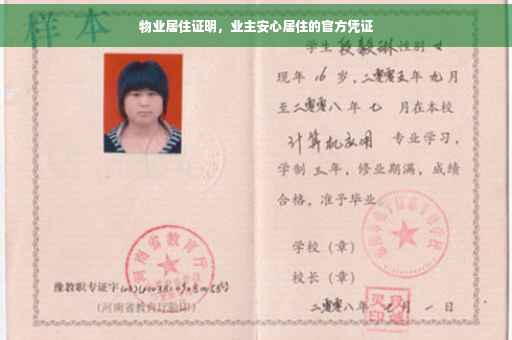 物业居住证明，业主安心居住的官方凭证
样本
学生段毅琳性别女
现年16岁，二零零五年九月
至二零零八年七月在本校
计算机应用 专业学习，
学制三年，修业期满，成绩
合格，准予毕业。
学校（章）
校长（章）
二零零八年七月一日
河南省教育厅
豫教职专证字
（河南省教育厅验印）